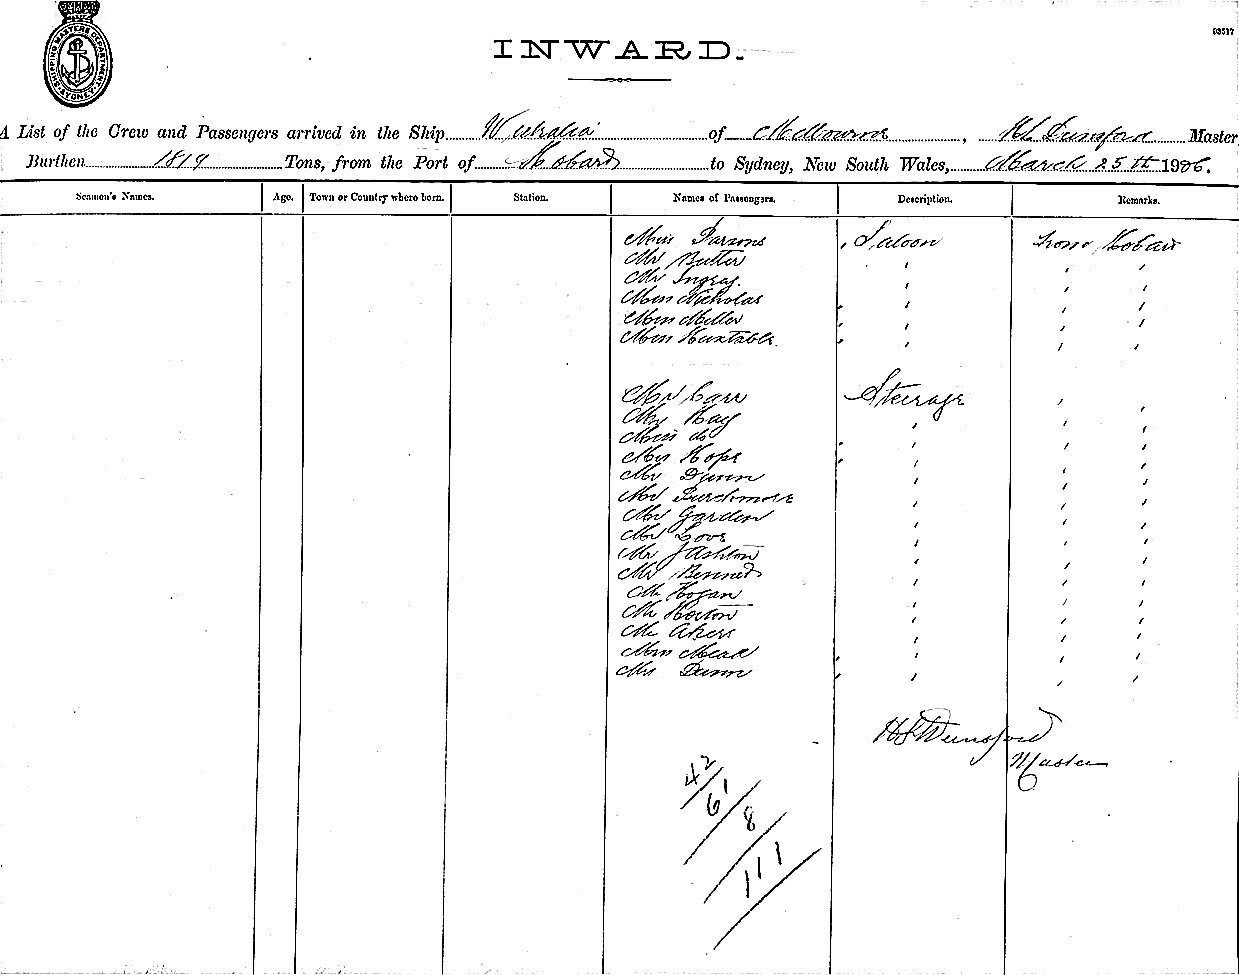 SHIPPING MASTERS DEPARTMENT SYDNEY
03517
INWARD.
A List of the Crew and Passengers arrived in the Ship Westralia of Melbourne, H L Dunsford Master
Burthen 1819 Tons, from the Port of Hobart to Sydney, New South Wales, March 25th 1906.
Seamen's Names. Age. Town or Country where born. Station. Names of Passengers. Description. Remarks.
Miss Parsons , Saloon from Hobart
Mr Butler , , ,
Mr , , ,
Miss Nicholas , , , ,
Miss Miller , , , ,
Miss Huxtable , , , ,
Mr Carr Steerage , ,
Hay , , ,
Miss do , , , ,
Hope , , , ,
Mr Dunn , , ,
Mr , , ,
Mr Garden , , ,
Mr Love , , ,
Mr J Ashton , , ,
Mr Bennet , , ,
Mr Hogan , , ,
Mr Horton , , ,
Mr Akers , , ,
Miss Mead , , , ,
Mrs Dunn , , , ,
H L Dunsford
Master
42
61
8
111